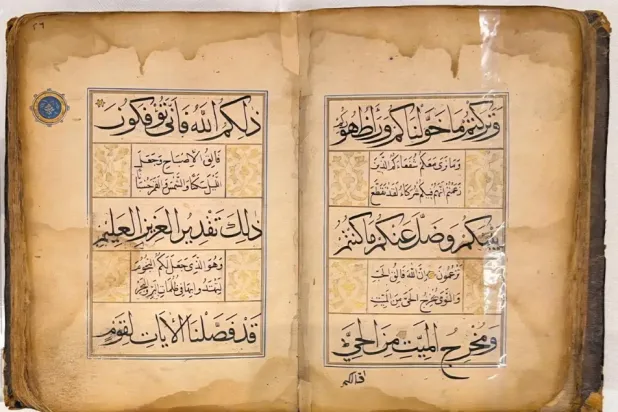 وتركتم ما خولناكم وراء ظهوركم
وما نرى معكم شفعاءكم الذين
زعمتم أنهم فيكم شركاء لقد تقطع
بينكم وضل عنكم ما كنتم
تزعمون إن الله فالق الحب
والنوى يخرج الحي من الميت
ومخرج الميت من الحي
ذلكم الله فأنى تؤفكون
فالق الإصباح وجعل
الليل سكنا والشمس والقمر حسبانا
ذلك تقدير العزيز العليم
وهو الذي جعل لكم النجوم
لتهتدوا بها في ظلمات البر والبحر
قد فصلنا الآيات لقوم